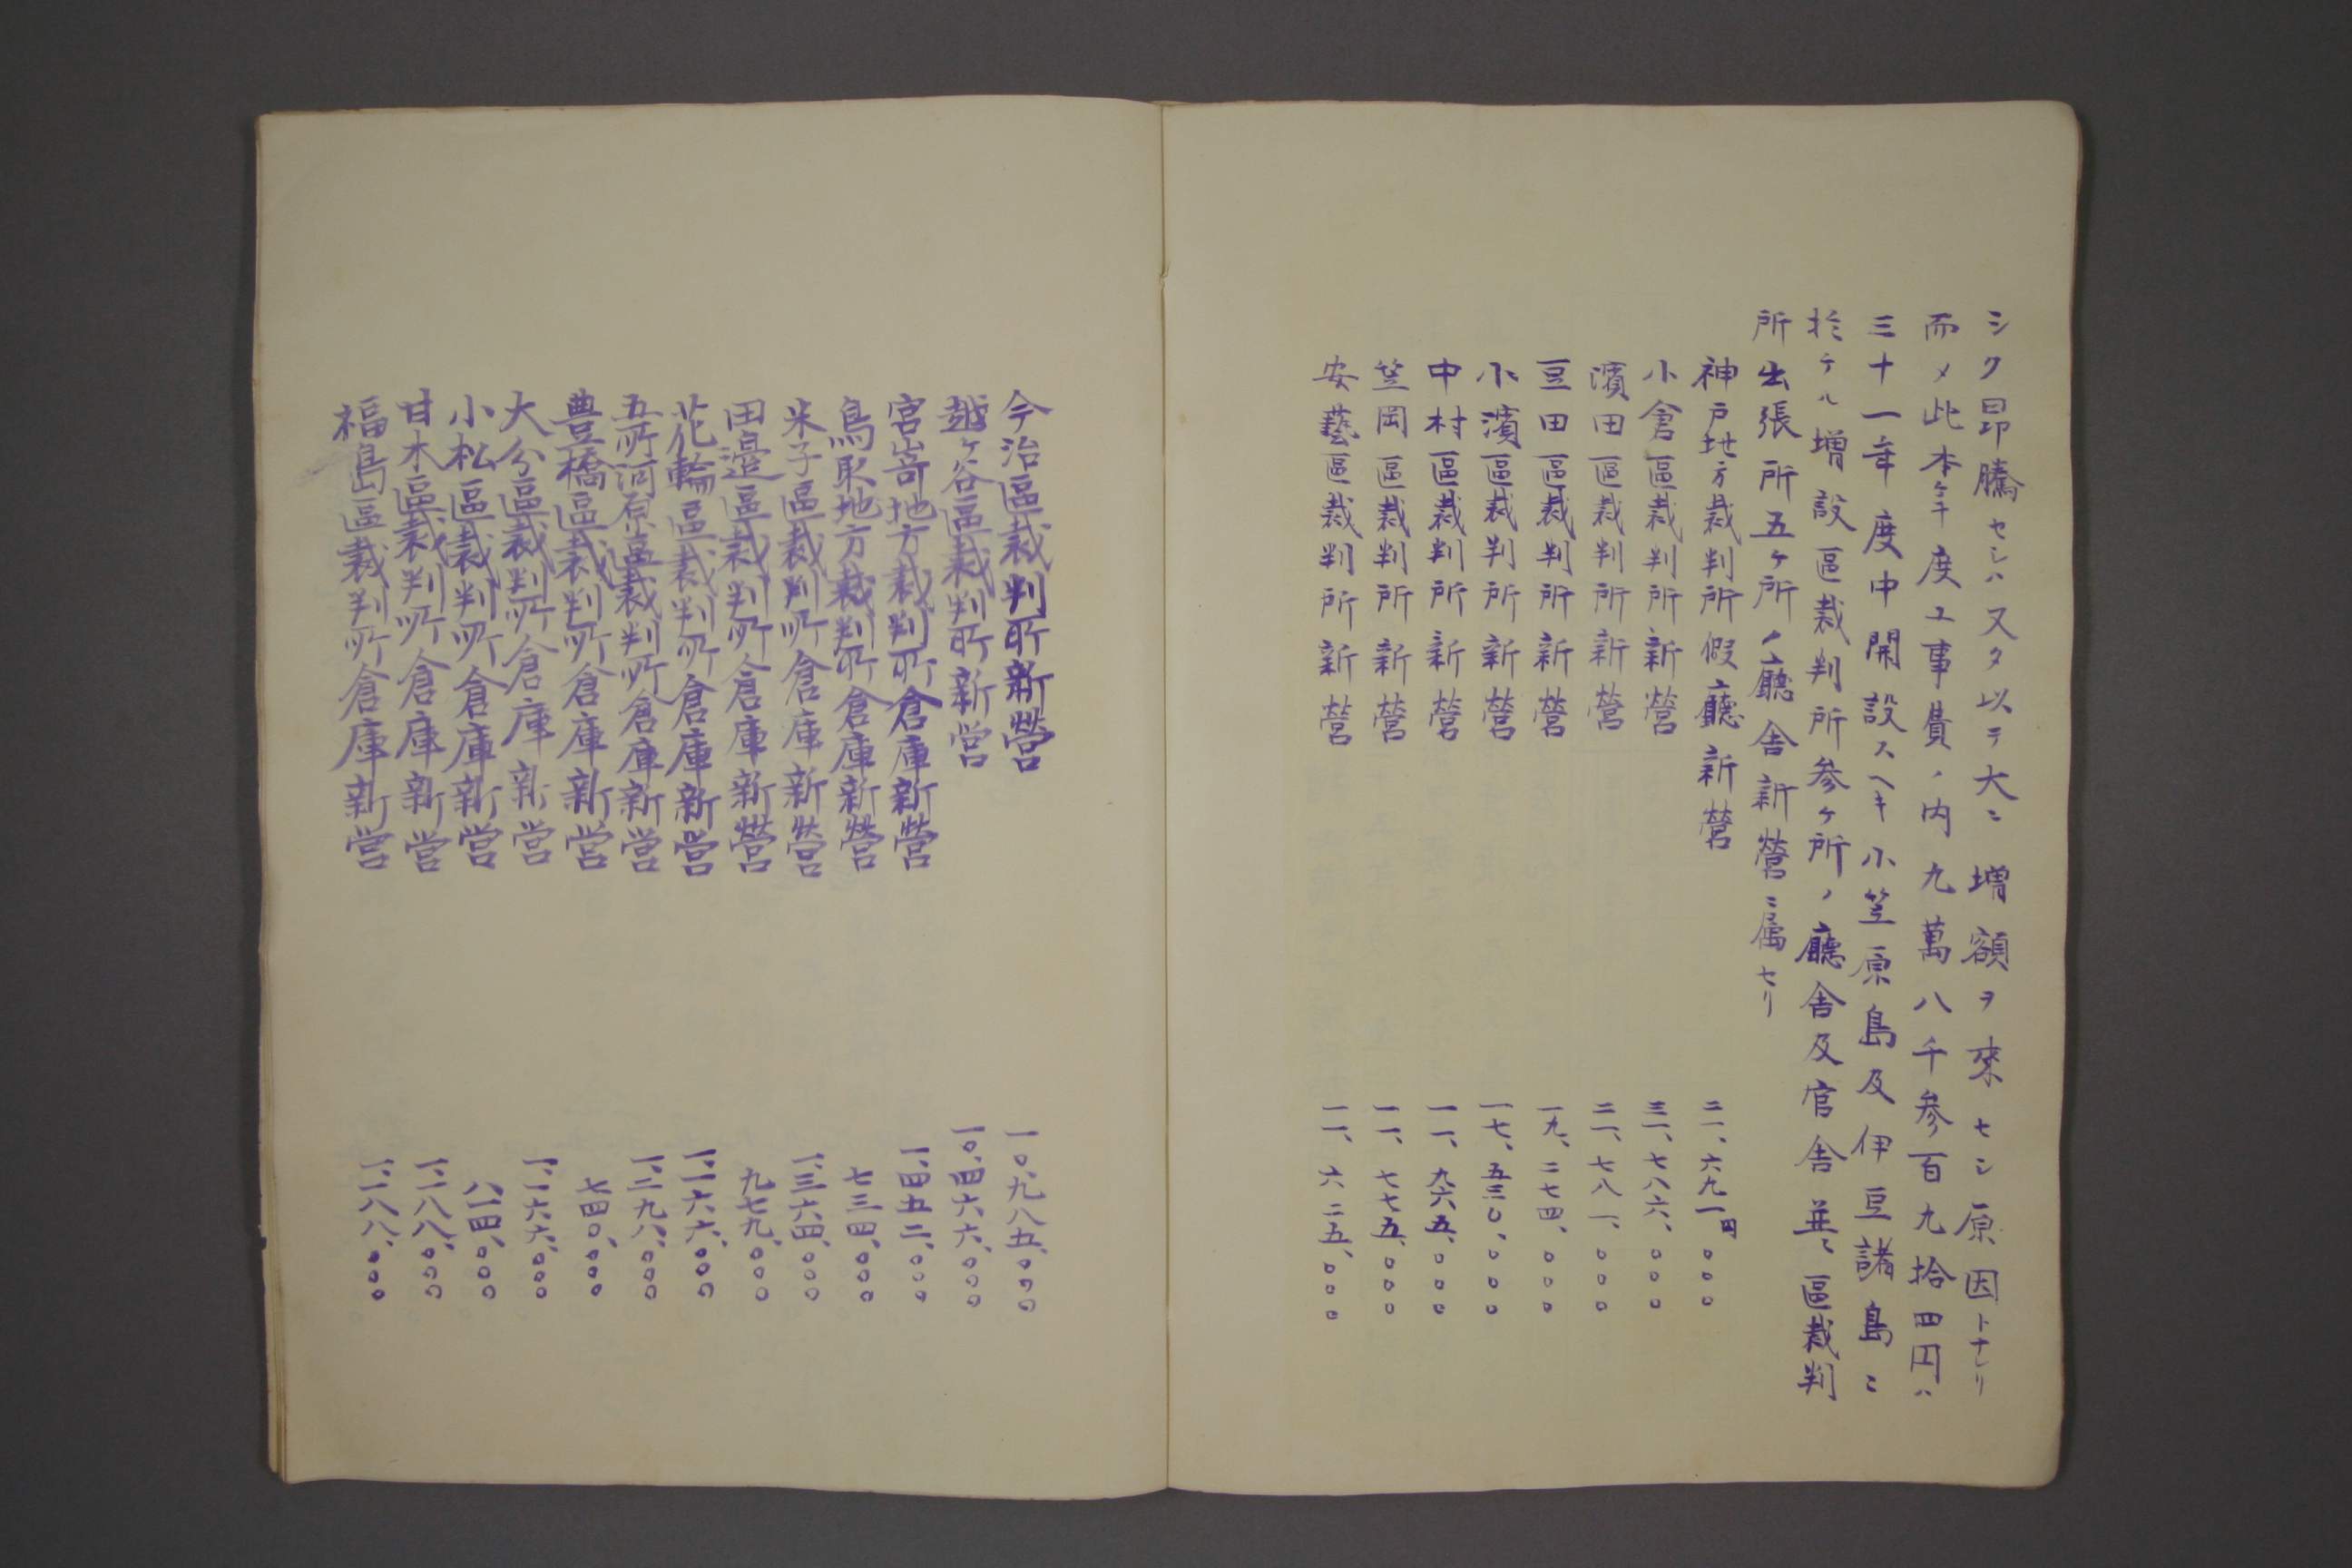 シク昂騰セシハ又タ以テ大ニ増額ヲ來セシ原因トナレリ
而メ此本年度工事費ノ内九萬八千参百九拾四円ハ
三十一年度中開設スヘキ小笠原島及伊豆諸島ニ
於ケル増設區裁判所参ケ所ノ廳舎及官舎並ニ區裁判
所出張所五ケ所ノ廳舎新營ニ属セリ
神戸地方裁判所假廳新營 二一、六九一円〇〇〇
小倉區裁判所新營 三一、七八六、〇〇〇
濱田區裁判所新營 二一、七八一、〇〇〇
豆田區裁判所新營 一九、二七四、〇〇〇
小濱區裁判所新營 一七、五三〇、〇〇〇
中村區裁判所新營 一一、九六五、〇〇〇
笠岡區裁判所新營 一一、七七五、〇〇〇
安藝區裁判所新營 一一、六二五、〇〇〇
今治區裁判所新營 一〇、九八五、〇〇〇
越ヶ谷區裁判所新営 一〇、四六六、〇〇〇
宮嵜地方裁判所倉庫新營 一、四五二、〇〇〇
鳥取地方裁判所倉庫新營 七三四、〇〇〇
米子區裁判所倉庫新營 一、三六四、〇〇〇
田邉區裁判所倉庫新營 九七九、〇〇〇
花輪區裁判所倉庫新営 一、一六六、〇〇〇
五所河原區裁判所倉庫新営 一、二九八、〇〇〇
豊橋區裁判所倉庫新営 七四〇、〇〇〇
大分區裁判所倉庫新営 一、一六六、〇〇〇
小松區裁判所倉庫新営 八一四、〇〇〇
甘木區裁判所倉庫新営 一、一八八、〇〇〇
福島區裁判所倉庫新営 一、一八八、〇〇〇